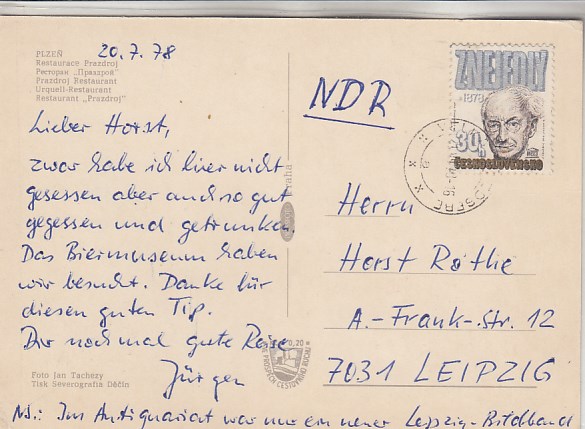 PLZEŇ
Restaurace Prazdroj
Ресторан „Праздрой“
Prazdroj Restaurant
Urquell-Restaurant
Restaurant „Prazdroj“
20.7.78
Lieber Horst,
zwar habe ich hier nicht
gegessen aber auch so gut
gegessen und getrunken.
Das Biermuseum haben
wir besucht. Danke für
diesen guten Tip.
Dir nochmal gute Reise
Jürgen
NS: Im Antiquariat war nur ein neuer Leipzig-Bildband
Foto Jan Tachezy
Tisk Severografia Děčín
Praha
0,20
NDR
ZNEJEDLÝ
1878
30h
ČESKOSLOVENSKO
Herrn
Horst Röthe
A.-Frank-Str. 12
7031 LEIPZIG